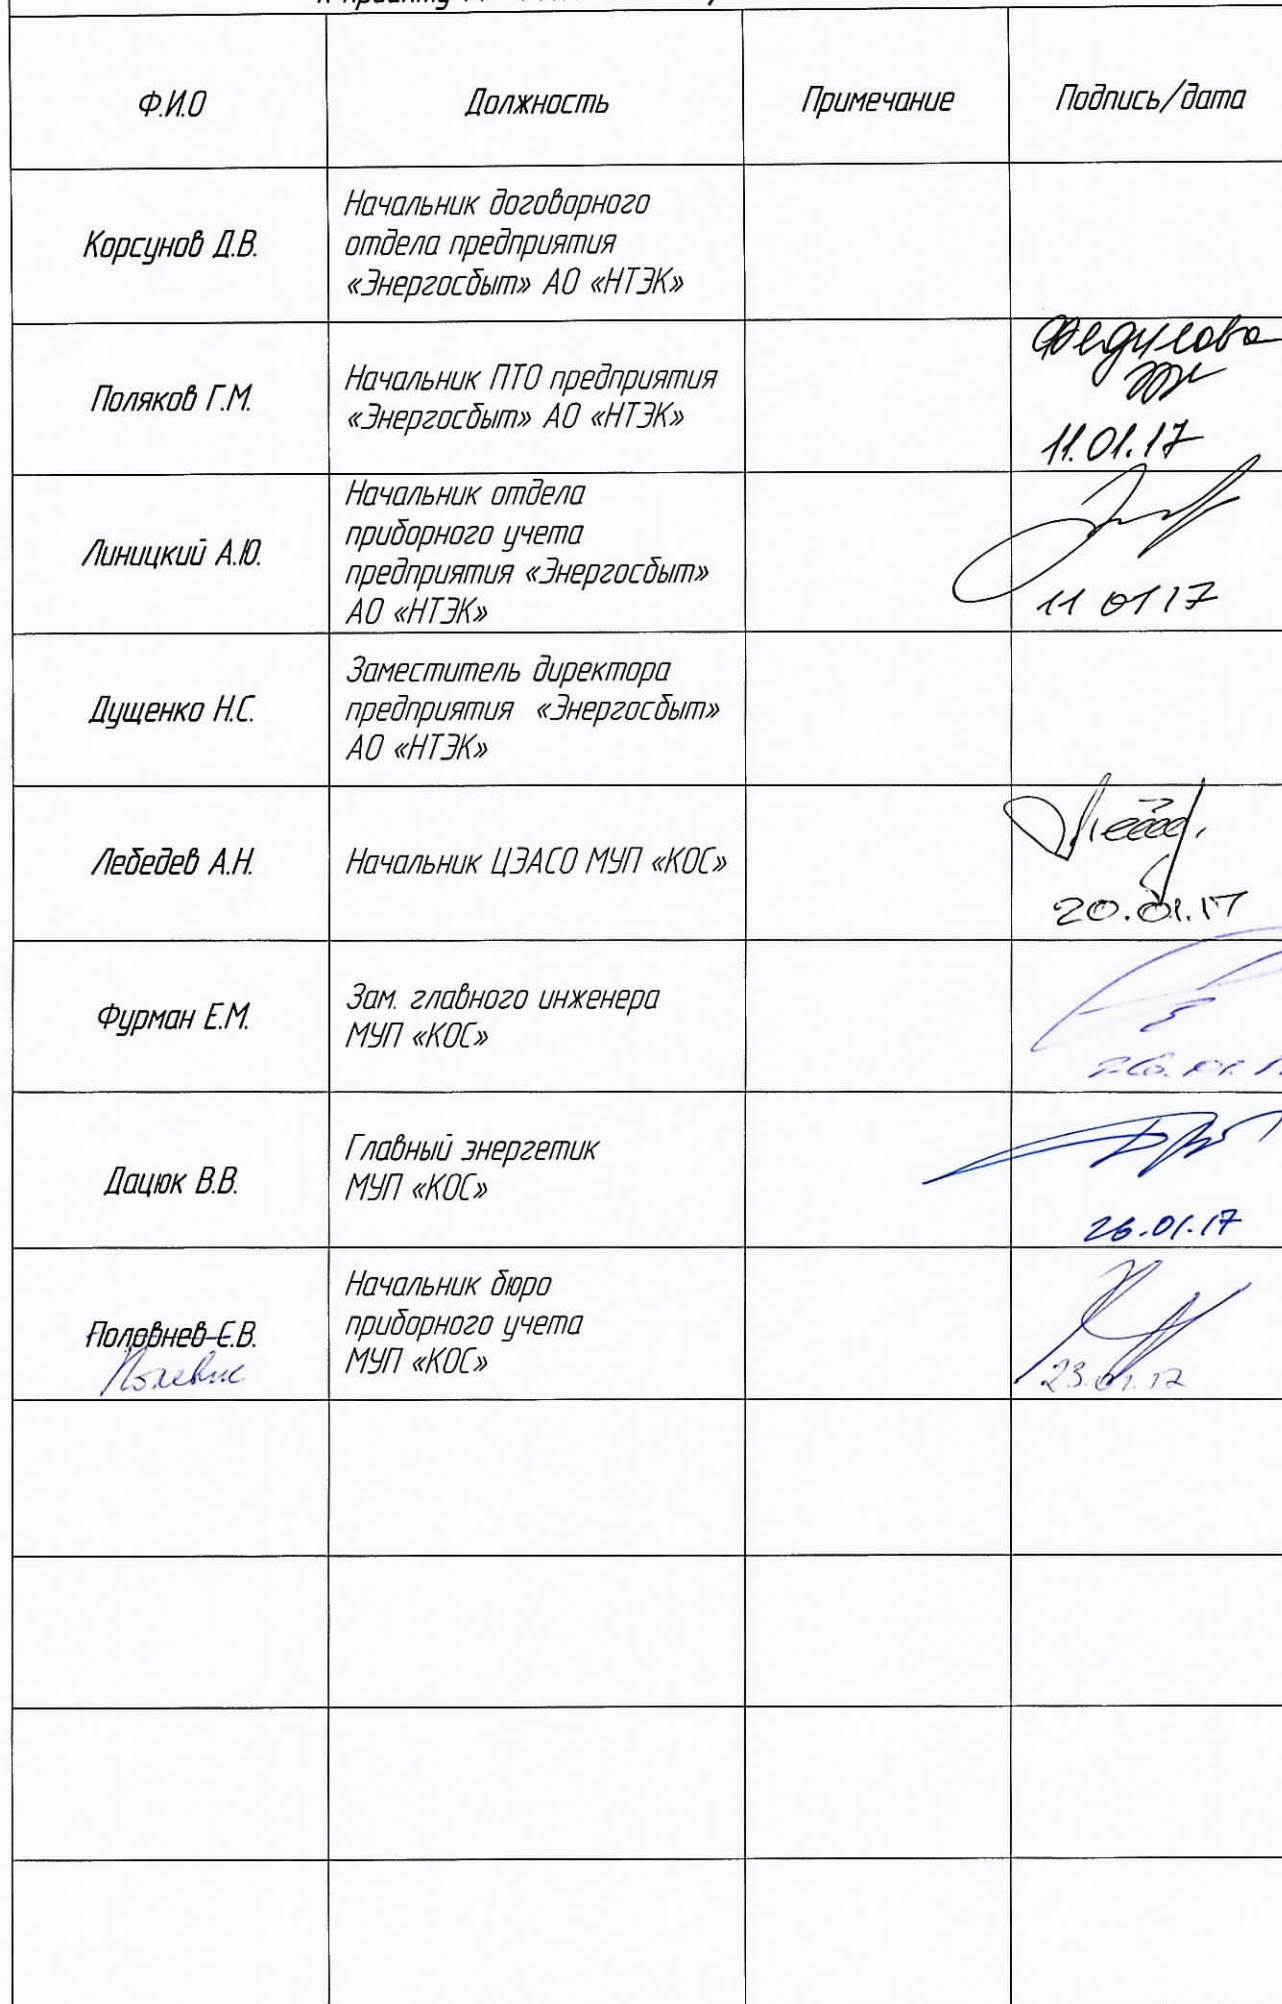 к проекту
Ф.И.О
Должность
Примечание
Подпись/дата
Корсунов Д.В.
Начальник договорного
отдела предприятия
«Энергосбыт» АО «НТЭК»
Поляков Г.М.
Начальник ПТО предприятия
«Энергосбыт» АО «НТЭК»
Федулова
11.01.17
Линицкий А.Ю.
Начальник отдела
приборного учета
предприятия «Энергосбыт»
АО «НТЭК»
11 01 17
Дущенко Н.С.
Заместитель директора
предприятия «Энергосбыт»
АО «НТЭК»
Лебедев А.Н.
Начальник ЦЭАСО МУП «КОС»
20.01.17
Фурман Е.М.
Зам. главного инженера
МУП «КОС»
Дацюк В.В.
Главный энергетик
МУП «КОС»
26.01.17
Половнев Е.В.
Начальник бюро
приборного учета
МУП «КОС»
23.01.17